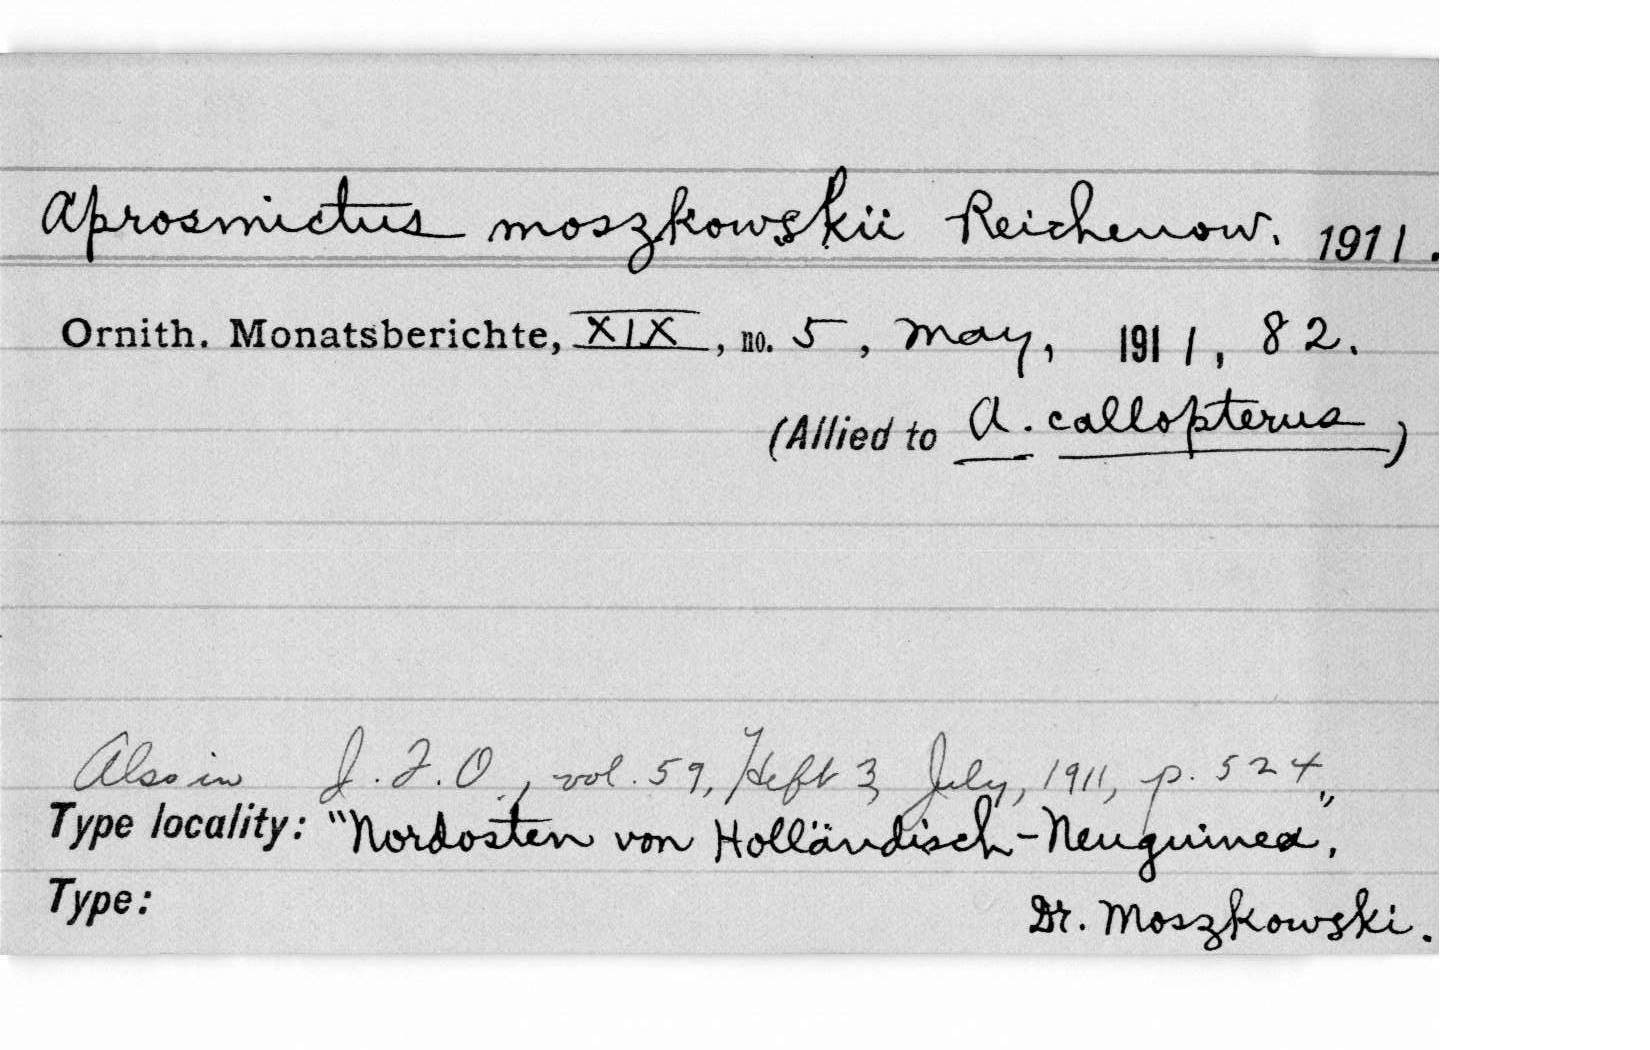 Aprosmictus moszkowskii Reichenow. 1911.
Ornith. Monatsberichte, XIX, no. 5, May, 1911, 82.
(Allied to A. callopterus)
Also in J. F. O., vol. 59, Heft 3, July, 1911, p. 524
Type locality: "Nordosten von Holländisch-Neuguinea,"
Type: Dr. Moszkowski.